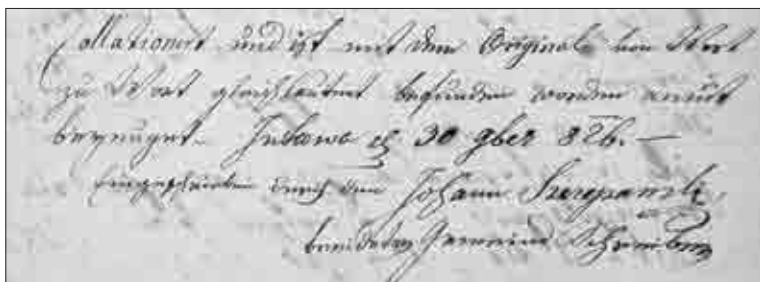 Collationirt und ist mit dem Original von Wort
zu Wort gleichlautent befunden worden
bezeuget. 30 9ber 826. —
Eingeschrieben durch den Johann Szczepanski,
beeideten Gemeinde Schreiber